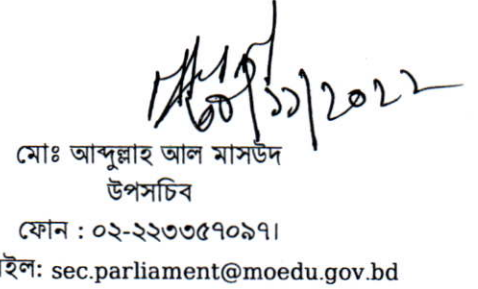 ৩০/১১/২০২২
মোঃ আব্দুল্লাহ আল মাসউদ
উপসচিব
ফোন : ০২-২২৩৩৫৭০৯৭।
ইল: sec.parliament@moedu.gov.bd